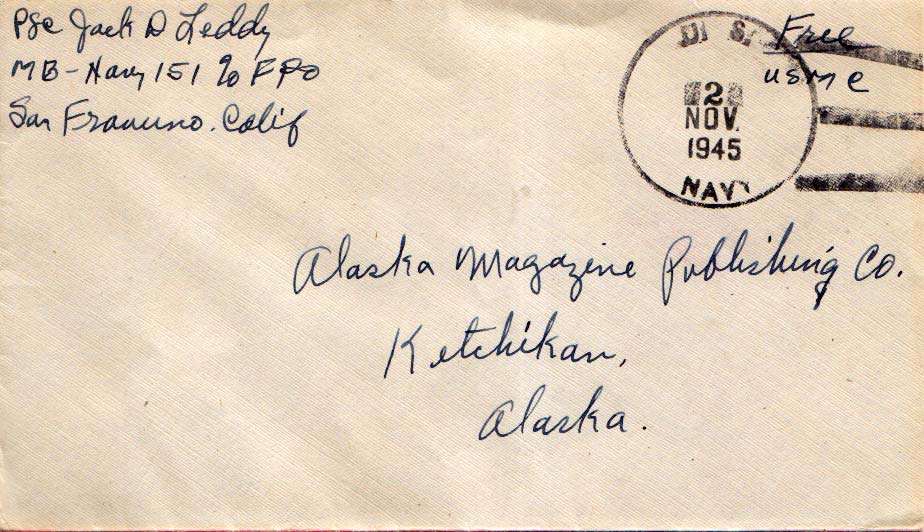 Pfc Jack D Leddy
MB - Navy 151 % FPO
San Francisco. Calif
U. S.
2
NOV.
1945
NAVY
Free
USMC
Alaska Magazine Publishing Co.
Ketchikan,
Alaska.